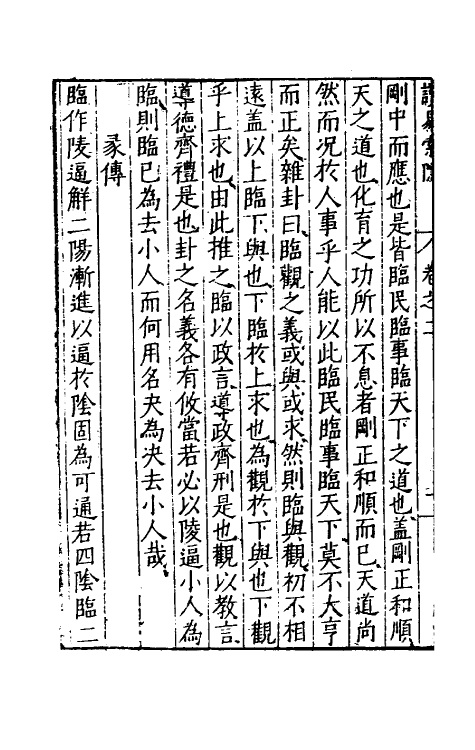 卷之二
剛中而應也是皆臨民臨事臨天下之道也蓋剛正和順
天之道也化育之功所以不息者剛正和順而已天道尚
然而况於人事乎人能以此臨民臨事臨天下莫不大亨
而正矣雜卦曰臨觀之義或與或求然則臨與觀初不相
遠盖以上臨下與也下臨於上求也為觀於下與也下觀
乎上求也由此推之臨以政言導政齊刑是也觀以教言
導德齊禮是也卦之名義各有攸當若必以陵逼小人為
臨則臨已為去小人而何用名夬為决去小人哉
彖傳
臨作陵逼解二陽漸進以逼於陰固為可通若四陰臨二